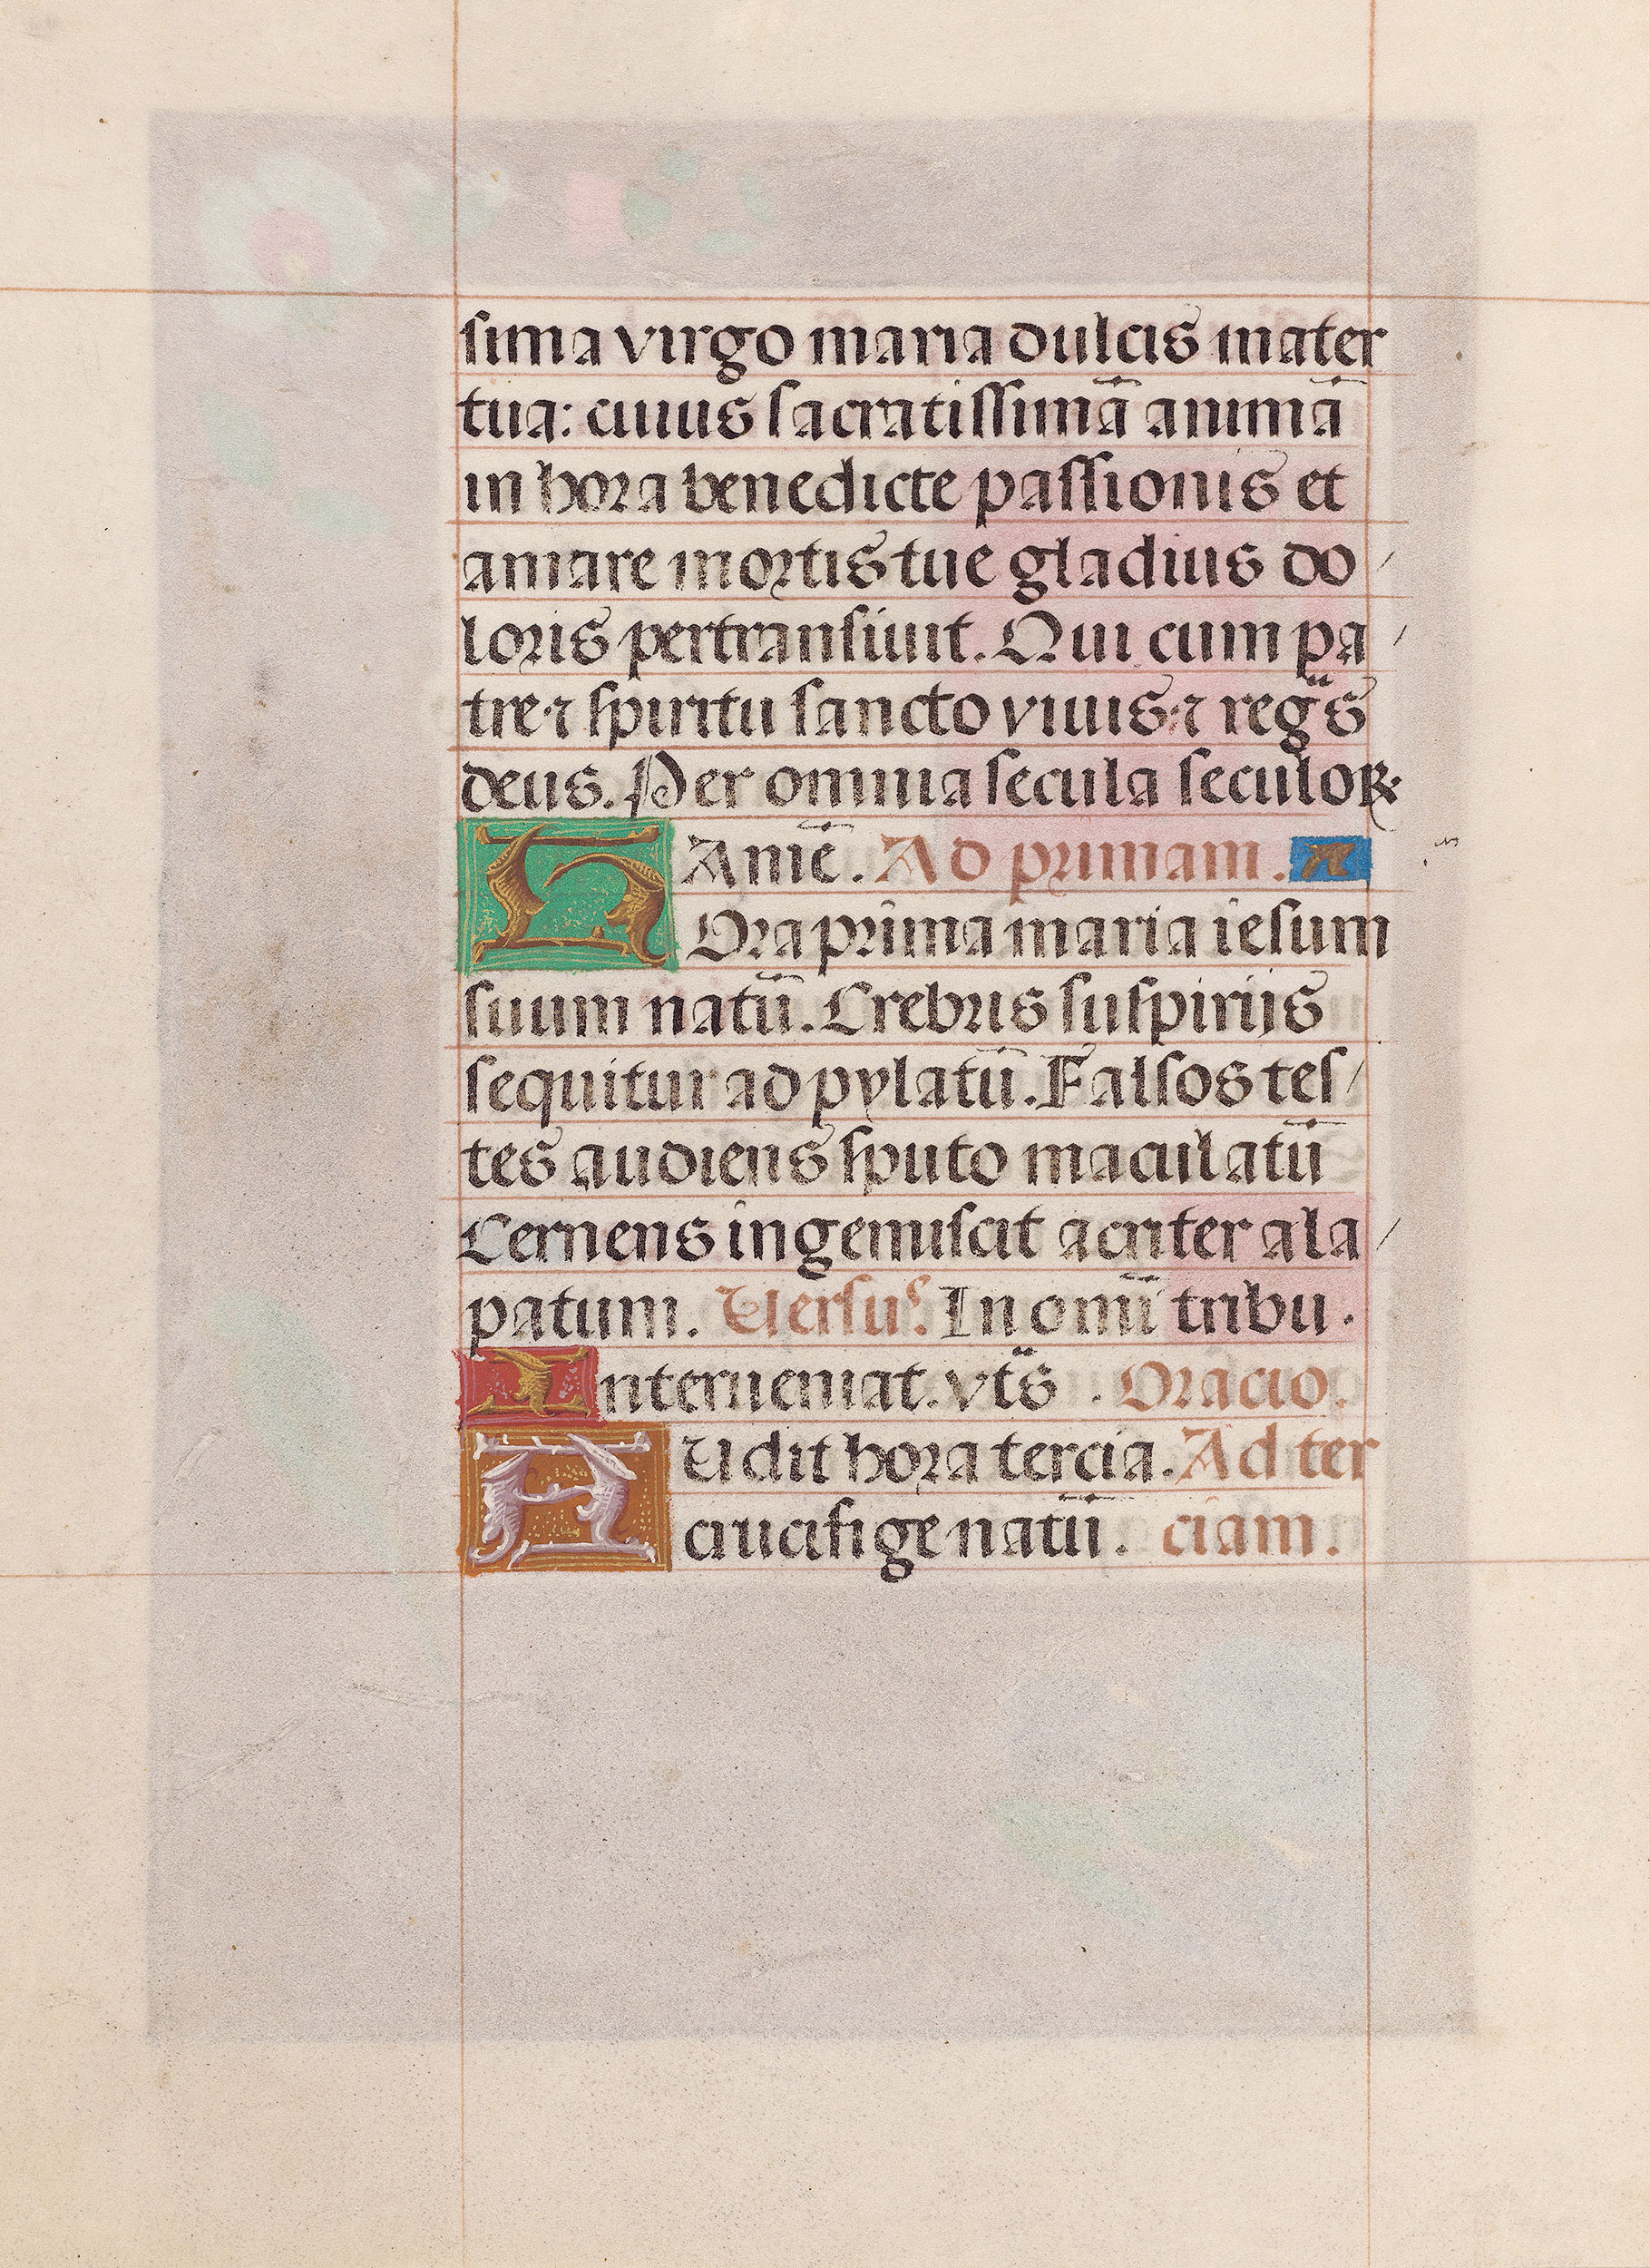 sima virgo maria dulcis mater
tua: cuius sacratissimā animā
in hora benedicte passionis et
amare mortis tue gladius do/
loris pertransiuit. Qui cum pa/
tre ⁊ spiritu sancto viuis ⁊ regs̄
deus. Per omnia secula seculoꝝ.
Amē. Ad primam. A
HOra prima maria iesum
suum natū. Crebris suspiriis
sequitur ad pylatū. Falsos tes/
tes audiens sputo maculatū
Cernens ingemiscit acriter ala/
patum. Versus. In omī tribu.
Interueniat. vts̄. Oracio.
AUdit hora tercia. Ad ter
crucifige natū. ciam.